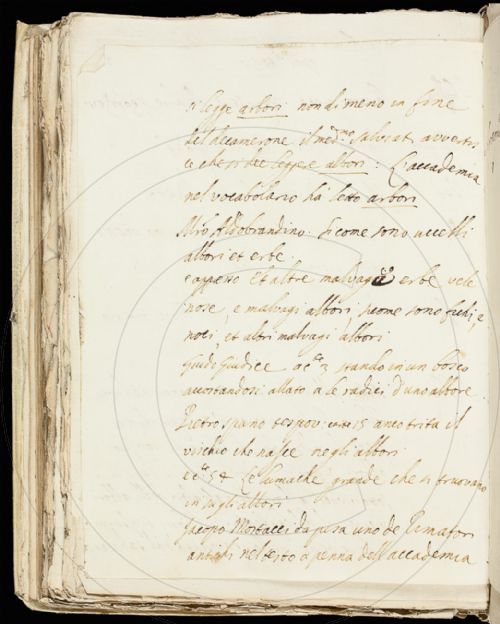 si legge arbori nondimeno in fine
del decamerone il med.mo Salviati avverti
ce che si dee leggere albori: L'accademia
nel vocabolario ha letto arbori
Mro Aldobrandino. Sicome sono uccelli
albori et erbe.
e appresso Et altre malvagie erbe vele
nose e malvagi albori, sicome sono fichi, e
noci, et altri malvagi albori
Guido Giudice a c. 3 stando in un bosco
accostandosi allato a le radici d'uno albore
Pietro spano 15 anco trita il
vischio che nasce negli albori.
54 Le lumache grande che si truovano
in su gli albori
Jacopo Mostacci da pisa uno de Rimatori
antichi nel testo a penna dell'accademia